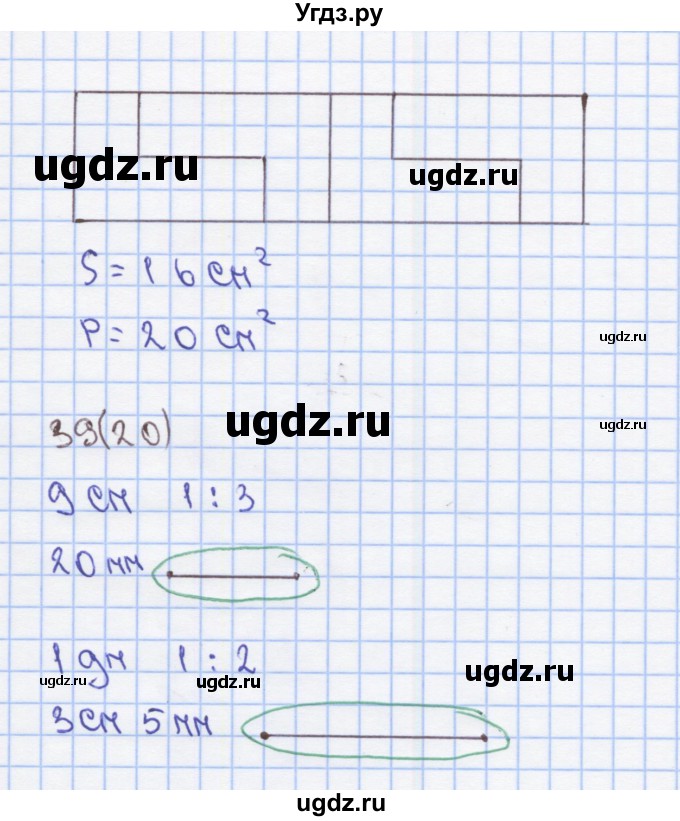 Угдз.ру
ugdz.ru
ugdz.ru
S = 16 см²
P = 20 см²
ugdz.ru
39(20)
ugdz.ru
ugdz.ru
9 см 1 : 3
20 мм
1 дм 1 : 2
ugdz.ru
ugdz.ru
ugdz.ru
3 см 5 мм
ugdz.ru